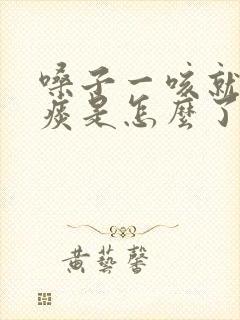 嗓子一咳就
痰是怎麽了
黄藝馨